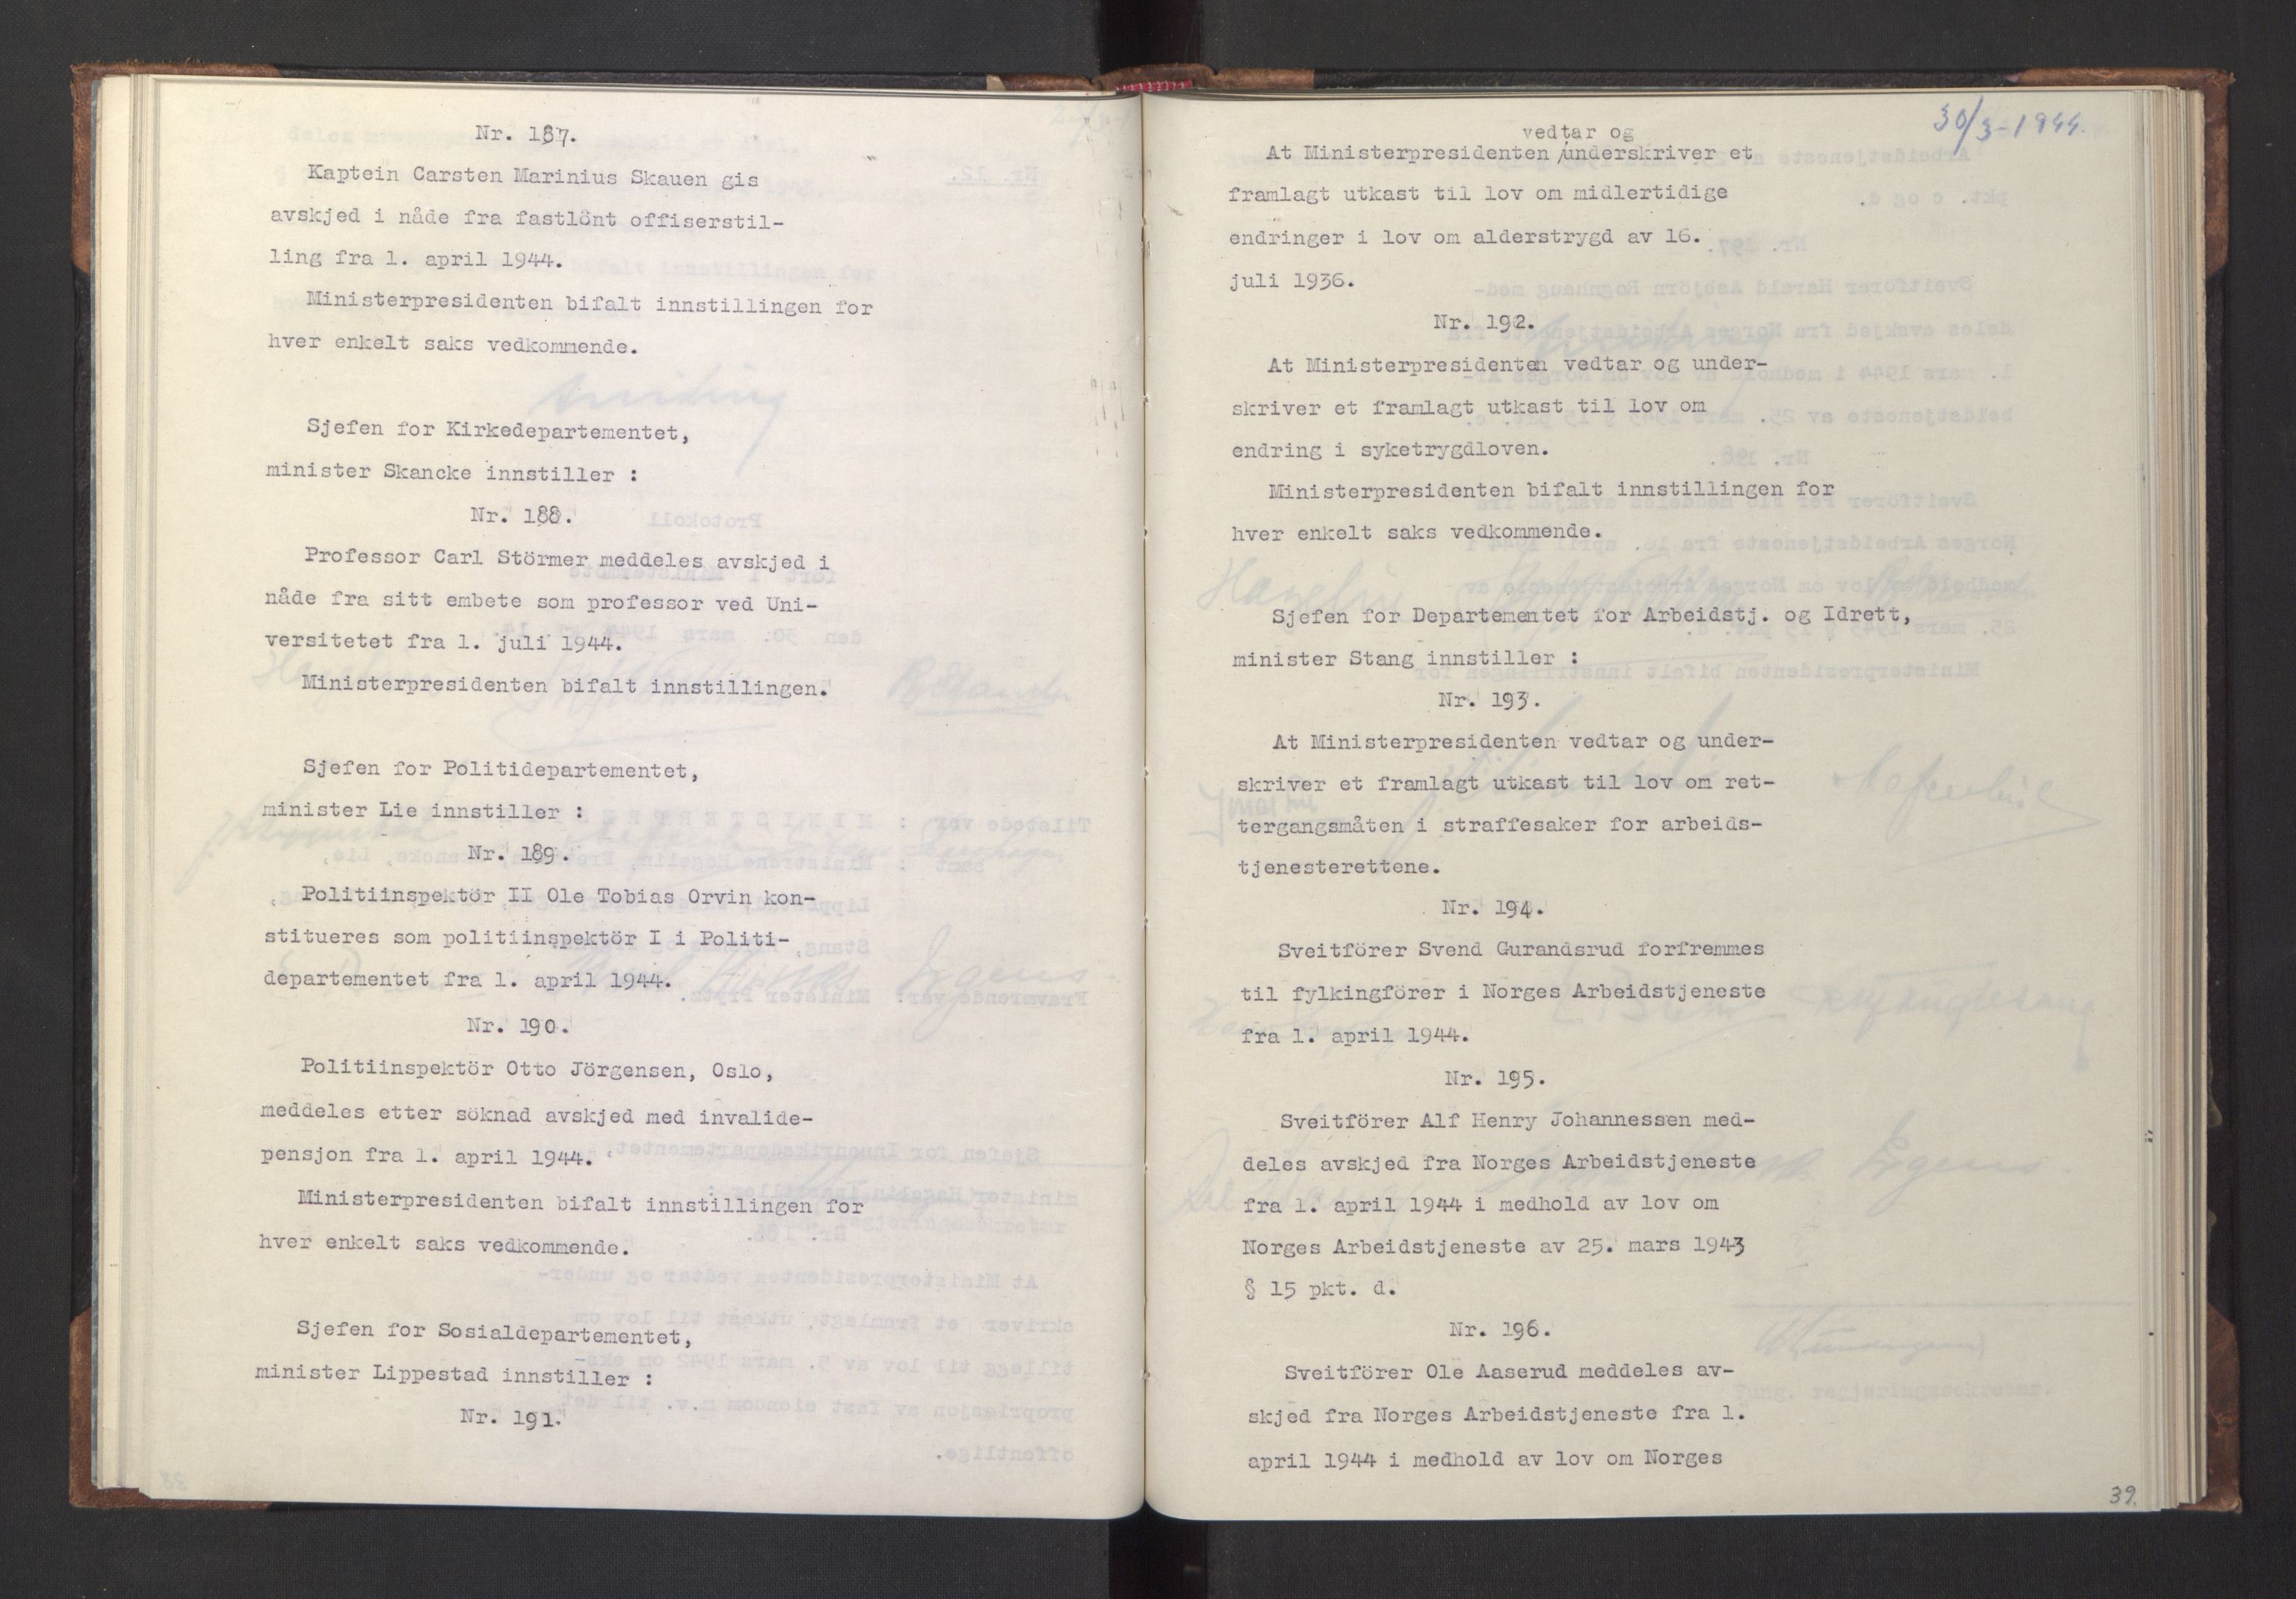 Nr. 187.
Kaptein Carsten Marinius Skauen gis
avskjed i nåde fra fastlönt offiserstil-
ling fra 1. april 1944.
Ministerpresidenten bifalt innstillingen for
hver enkelt saks vedkommende.
Sjefen for Kirkedepartementet,
minister Skancke innstiller :
Nr. 188.
Professor Carl Störmer meddeles avskjed i
nåde fra sitt embete som professor ved Uni-
versitetet fra 1. juli 1944.
Ministerpresidenten bifalt innstillingen.
Sjefen for Politidepartementet,
minister Lie innstiller :
Nr. 189.
Politiinspektör II Ole Tobias Orvin kon-
stitueres som politiinspektör I i Politi-
departementet fra 1. april 1944.
Nr. 190.
Politiinspektör Otto Jörgensen, Oslo,
meddeles etter söknad avskjed med invalide-
pensjon fra 1. april 1944.
Ministerpresidenten bifalt innstillingen for
hver enkelt saks vedkommende.
Sjefen for Sosialdepartementet,
minister Lippestad innstiller :
Nr. 191.
30/3-1944.
vedtar og
At Ministerpresidenten /underskriver et
framlagt utkast til lov om midlertidige
endringer i lov om alderstrygd av 16.
juli 1936.
Nr. 192.
At Ministerpresidenten vedtar og under-
skriver et framlagt utkast til lov om
endring i syketrygdloven.
Ministerpresidenten bifalt innstillingen for
hver enkelt saks vedkommende.
Sjefen for Departementet for Arbeidstj. og Idrett,
minister Stang innstiller :
Nr. 193.
At Ministerpresidenten vedtar og under-
skriver et framlagt utkast til lov om ret-
tergangsmåten i straffesaker for arbeids-
tjenesterettene.
Nr. 194.
Sveitförer Svend Gurandsrud forfremmes
til fylkingförer i Norges Arbeidstjeneste
fra 1. april 1944.
Nr. 195.
Sveitförer Alf Henry Johannessen med-
deles avskjed fra Norges Arbeidstjeneste
fra 1. april 1944 i medhold av lov om
Norges Arbeidstjeneste av 25. mars 1943
§ 15 pkt. d.
Nr. 196.
Sveitförer Ole Aaserud meddeles av-
skjed fra Norges Arbeidstjeneste fra 1.
april 1944 i medhold av lov om Norges
39.